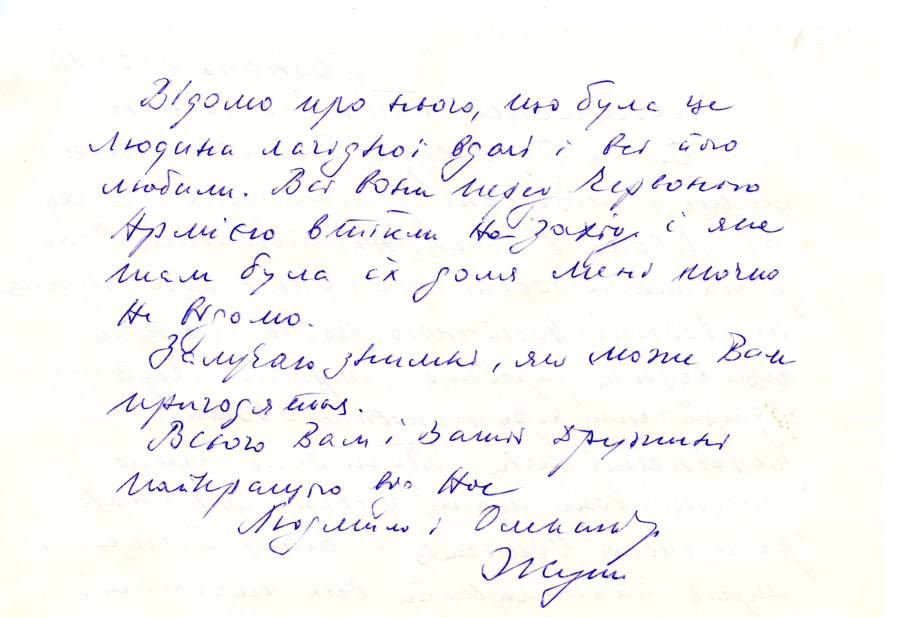 Відомо про нього, що була це
людина лагідної вдачі і всі його
любили. Всі вони перед Червоною
Армією втікли на захід і яка
там була їх доля мені точно
не відомо.
Залучаю знимки, які може Вам
пригодяться.
Всього Вам і Вашій Дружині
найкращого від нас
Людмила і Олександр